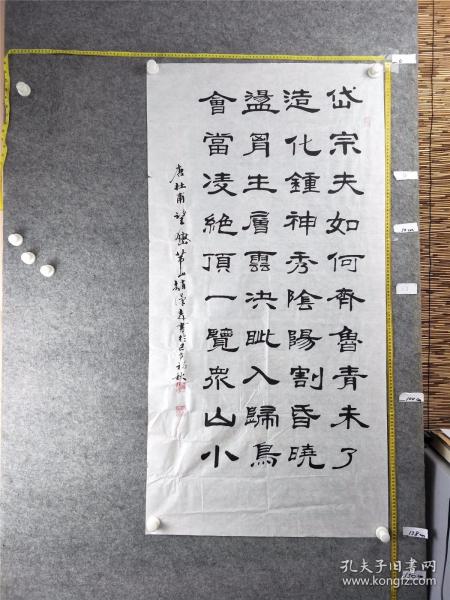 岱宗夫如何齊魯青未了
造化鍾神秀陰陽割昏曉
盪胷生層雲決眦入歸鳥
會當凌絕頂一覽眾山小
唐杜甫望嶽
孔夫子旧书网
www.kongfz.com